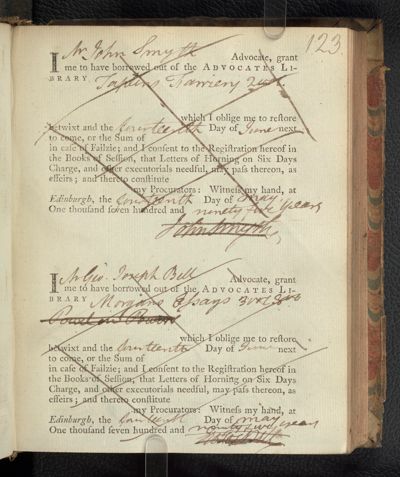 123
I Mr John Smyth Advocate, grant
me to have borrowed out of the ADVOCATES LI-
BRARY Taplins Farriery 2 vol.
which I oblige me to restore
betwixt and the fourteenth Day of June next
to come, or the Sum of
in case of Failzie; and I consent to the Registration hereof in
the Books of Session, that Letters of Horning on Six Days
Charge, and other executorials needful, may pass thereon, as
effeirs; and thereto constitute
my Procurators: Witness my hand, at
Edinburgh, the fourteenth Day of May
One thousand seven hundred and ninety five years
John Smyth
I Mr Geo. Joseph Bell Advocate, grant
me to have borrowed out of the ADVOCATES LI-
BRARY Morgans Essays 3 vol
which I oblige me to restore
betwixt and the fourteenth Day of June next
to come, or the Sum of
in case of Failzie; and I consent to the Registration hereof in
the Books of Session, that Letters of Horning on Six Days
Charge, and other executorials needful, may pass thereon, as
effeirs; and thereto constitute
my Procurators: Witness my hand, at
Edinburgh, the fourteenth Day of May
One thousand seven hundred and ninety five years